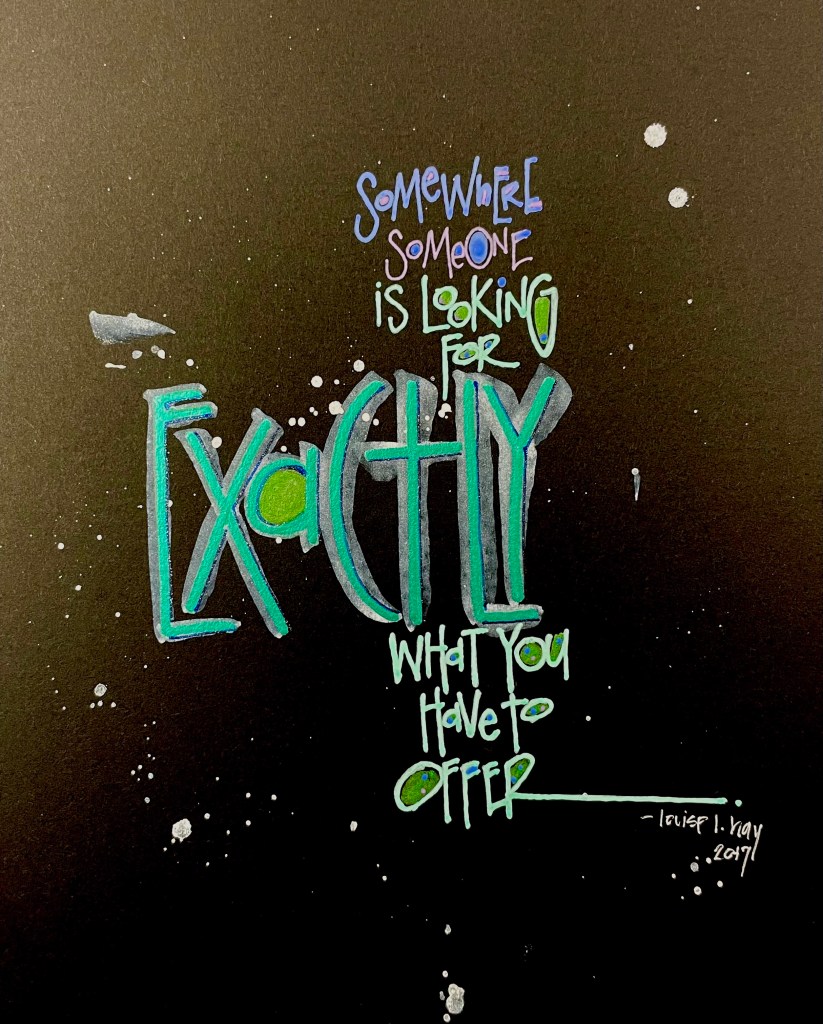 SOMEWHERE
SOMEONE
iS LOOKiNG
FOR
EXaCTLY
WHaT YOU
HaVe TO
OFFER.
- louise l. hay
2017